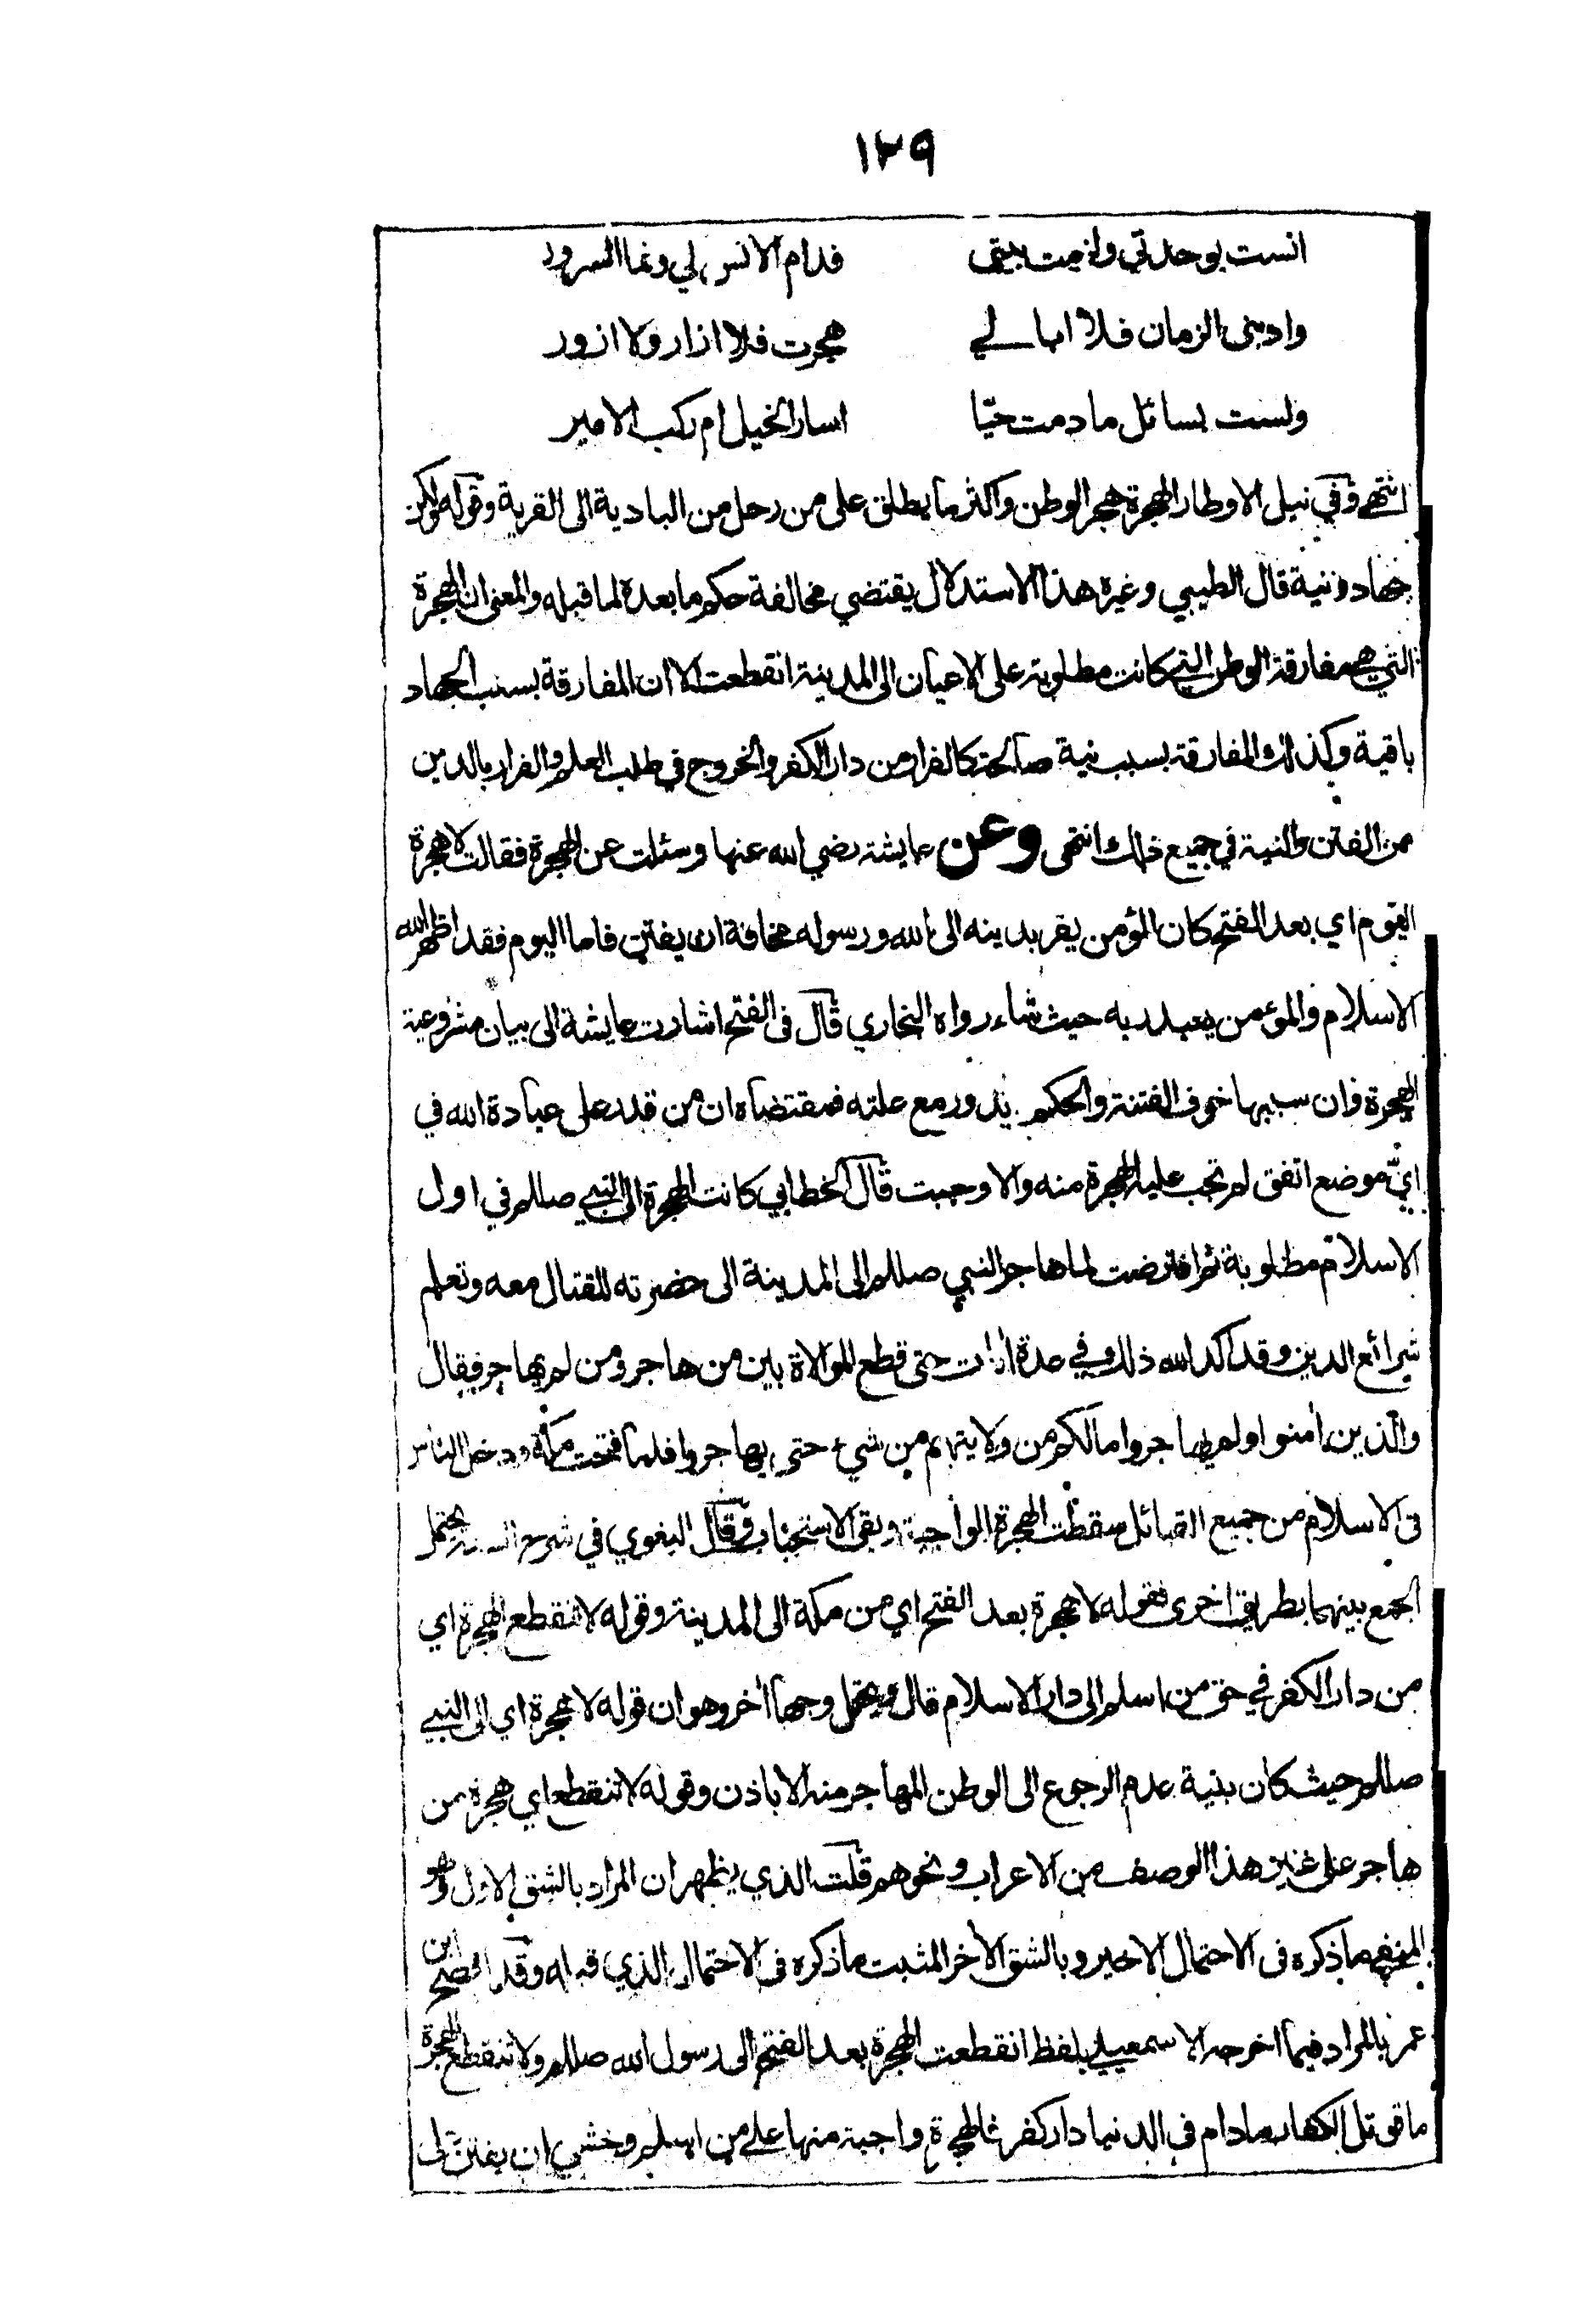 ١٢٩
انست بوحدتي ولزمت بيتي فدام الانس لي ونما السرور
وادبنى الزمان فلا ابالي هجرت فلا ازار ولا ازور
ولست بسائل ما دمت حيّا اسار الخيل ام ركب الامير
انتهى وفي نيل الاوطار الهجرة هجر الوطن واكثر ما يطلق على من رحل من البادية الى القرية وقوله ولكن
جهاد ونية قال الطيبي وغيره هذا الاستدلال يقتضي مخالفة حكم ما بعده لما قبله والمعنى ان الهجرة
التي هي مفارقة الوطن التي كانت مطلوبة على الاعيان الى المدينة انقطعت الا ان المفارقة بسبب الجهاد
باقية وكذلك المفارقة بسبب نية صالحة كالفرار من دار الكفر والخروج في طلب العلم والفرار بالدين
من الفتن والنية في جميع ذلك انتهى وعن عايشة رضي الله عنها وسئلت عن الهجرة فقالت لا هجرة
اليوم اي بعد الفتح كان المؤمن يفر بدينه الى الله ورسوله مخافة ان يفتن فاما اليوم فقد اظهر الله
الاسلام والمؤمن يعبد ربه حيث شاء رواه البخاري قال فى الفتح اشارت عايشة الى بيان مشروعية
الهجرة وان سببها خوف الفتنة والحكم يدور مع علته فمقتضاه ان من قدر على عبادة الله في
ايّ موضع اتفق لم تجب عليه الهجرة منه والا وجبت قال الخطابي كانت الهجرة الى النبي صللم في اول
الاسلام مطلوبة ثم افترضت لما هاجر النبي صللم الى المدينة الى حضرته للقتال معه وتعلم
شرائع الدين وقد اكد الله ذلك في عدة ايات حتى قطع الموالاة بين من هاجر ومن لم يهاجر فقال
والذين امنوا ولم يهاجروا مالكم من ولايتهم من شيء حتى يهاجروا فلما فتحت مكة ودخل الناس
فى الاسلام من جميع القبائل سقطت الهجرة الواجبة وبقى الاستحباب وقال البغوي في شرح السنة يحتمل
الجمع بينهما بطريق اخرى فقوله لا هجرة بعد الفتح اي من مكة الى المدينة وقوله لا تنقطع الهجرة اي
من دار الكفر في حق من اسلم الى دار الاسلام قال ويحتمل وجها اخر وهو ان قوله لا هجرة اي الى النبي
صللم حيث كان بنية عدم الرجوع الى الوطن المهاجر منه الا باذن وقوله لا تنقطع اي هجرة من
هاجر على غير هذا الوصف من الاعراب ونحوهم قلت الذي يظهر ان المراد بالشق الاول وهو
المنفي ما ذكره فى الاحتمال الاخير وبالشق الاخر المثبت ما ذكره فى الاحتمال الذي قبله وقد افصح ابن
عمر بالمراد فيما اخرجه الاسمعيلي بلفظ انقطعت الهجرة بعد الفتح الى رسول الله صللم ولا تنقطع الهجرة
ما قوتل الكفار ما دام فى الدنيا دار كفر فالهجرة واجبة منها على من اسلم وخشي ان يفتن